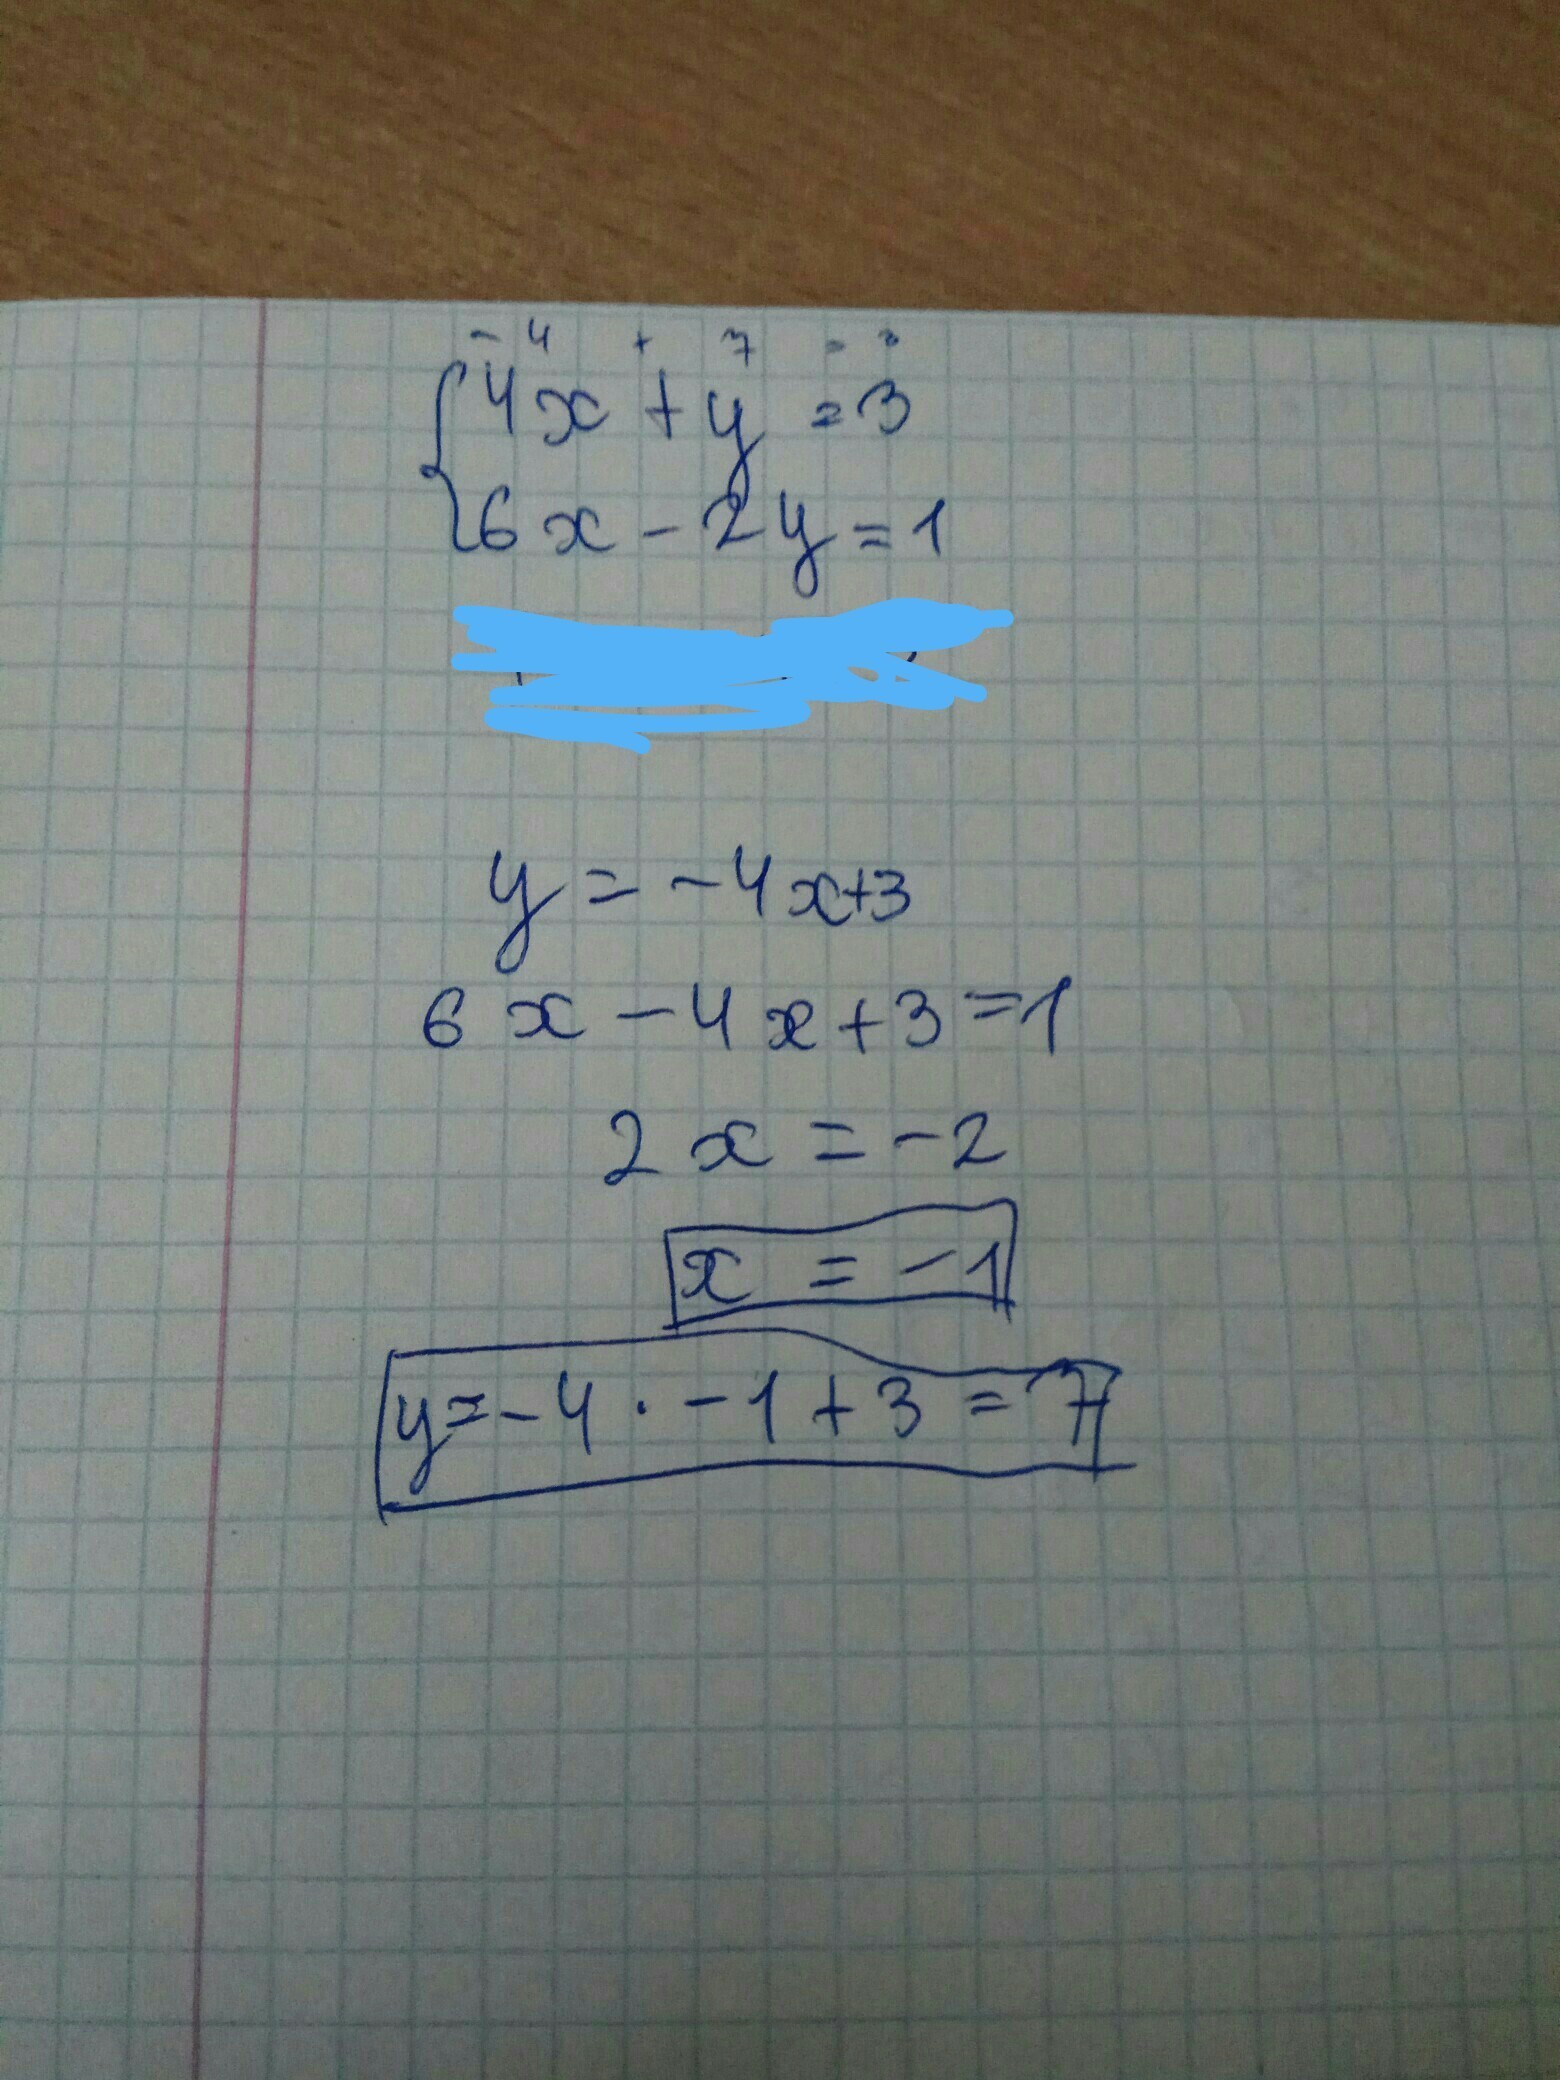 - 4 + 7 = 3
4x + y = 3
6x - 2y = 1
y = -4x+3
6x - 4x + 3 = 1
2x = -2
x = -1
y = -4 · -1 + 3 = 7